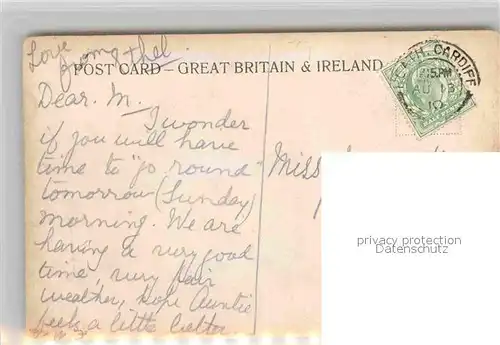 Love
from Ethel.
POST CARD – GREAT BRITAIN & IRELAND
HEATH. CARDIFF
Dear. M.
I wonder
if you will have
time to "go round"
tomorrow (Sunday)
morning. We are
having a very good
time, very fair
weather, hope Auntie
feels a little better.
Miss
privacy protection
Datenschutz